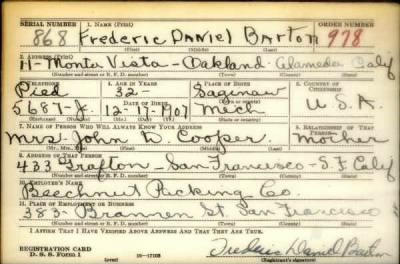 SERIAL NUMBER 1. NAME (Print) ORDER NUMBER
868 Frederic DANiel Barton 978
(First) (Middle) (Last)
2. ADDRESS (Print)
11- Monte Vista - Oakland - Alameda Calif
(Number and street or R. F. D. number) (Town) (County) (State)
3. TELEPHONE 4. AGE IN YEARS 5. PLACE OF BIRTH 6. COUNTRY OF CITIZENSHIP
Pied 32- Saginaw
(Town or county)
DATE OF BIRTH
5687-J. 12-17-1907 Mich U.S.A.
(Mo.) (Day) (Yr.) (State or country)
7. NAME OF PERSON WHO WILL ALWAYS KNOW YOUR ADDRESS 8. RELATIONSHIP OF THAT PERSON
Mrs. John D. Cooper. Mother
9. ADDRESS OF THAT PERSON
433 Grafton - San Francisco - S.F. Calif
(Number and street or R. F. D. number) (Town) (County) (State)
10. EMPLOYER'S NAME
Beechnut Packing Co
11. PLACE OF EMPLOYMENT OR BUSINESS
385- Brannen St. San Francisco
(Number and street or R. F. D. number) (Town) (County) (State)
I AFFIRM THAT I HAVE VERIFIED ABOVE ANSWERS AND THAT THEY ARE TRUE.
REGISTRATION CARD
D. S. S. Form 1 (over) 16-17105 Frederic Daniel Barton
(Registrant's signature)